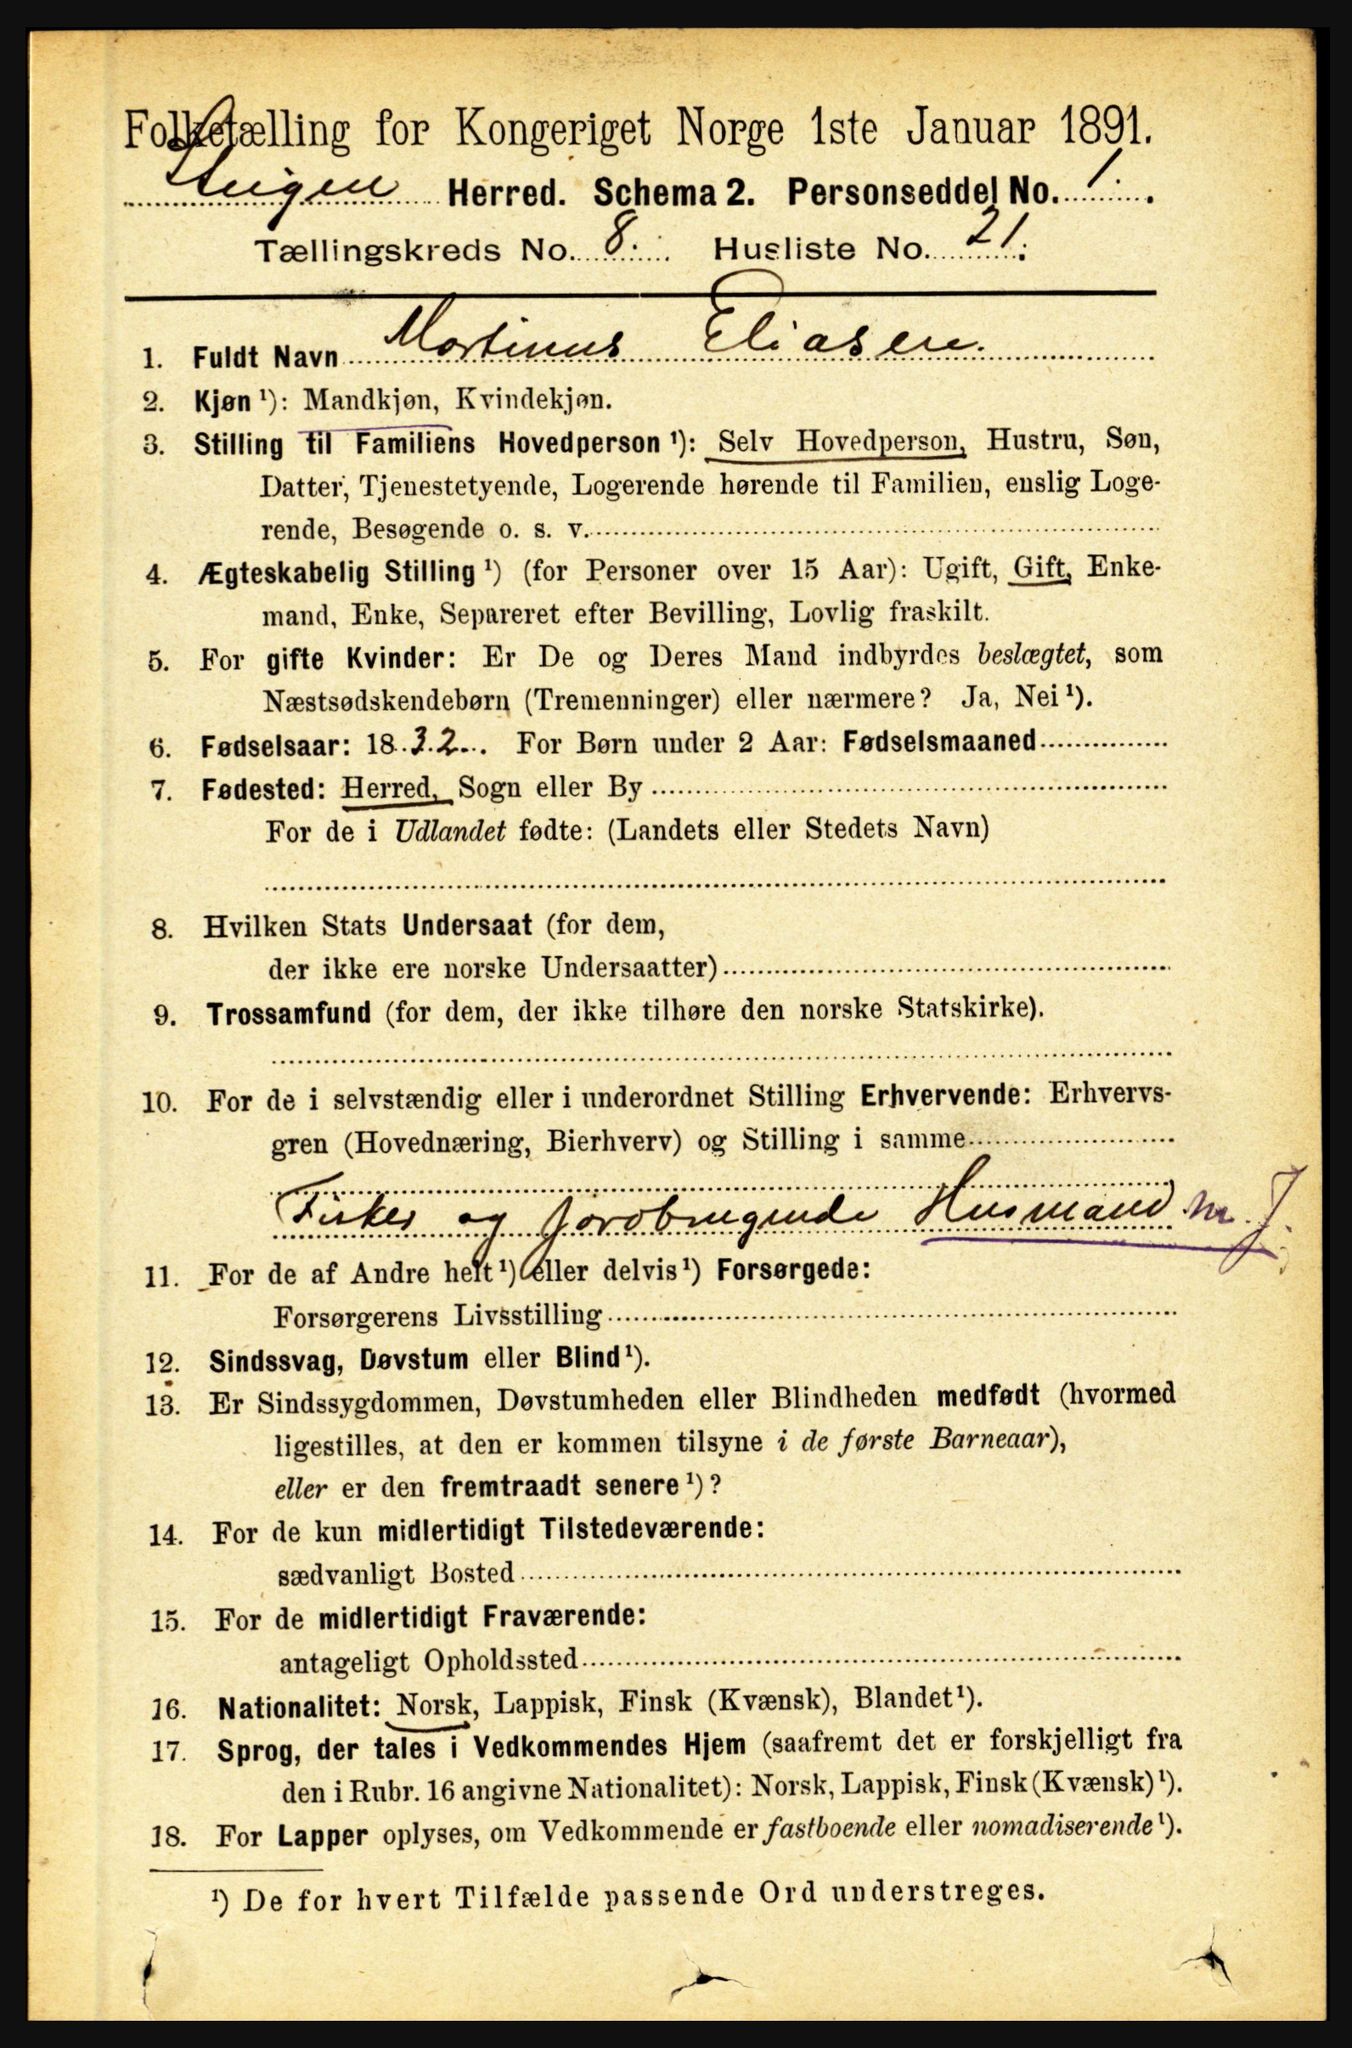 Folketælling for Kongeriget Norge 1ste Januar 1891.
Steigen Herred. Schema 2. Personseddel No. 1.
Tællingskreds No. 8. Husliste No. 21.
1. Fuldt Navn Martinus Eliasen.
2. Kjøn ¹): Mandkjøn, Kvindekjøn.
3. Stilling til Familiens Hovedperson ¹): Selv Hovedperson, Hustru, Søn,
Datter, Tjenestetyende, Logerende hørende til Familien, enslig Loge-
rende, Besøgende o. s. v.
4. Ægteskabelig Stilling ¹) (for Personer over 15 Aar): Ugift, Gift, Enke-
mand, Enke, Separeret efter Bevilling, Lovlig fraskilt.
5. For gifte Kvinder: Er De og Deres Mand indbyrdes beslægtet, som
Næstsødskendebørn (Tremenninger) eller nærmere? Ja, Nei ¹).
6. Fødselsaar: 1832. For Børn under 2 Aar: Fødselsmaaned
7. Fødested: Herred, Sogn eller By
For de i Udlandet fødte: (Landets eller Stedets Navn)
8. Hvilken Stats Undersaat (for dem,
der ikke ere norske Undersaatter)
9. Trossamfund (for dem, der ikke tilhøre den norske Statskirke).
10. For de i selvstændig eller i underordnet Stilling Erhvervende: Erhvervs-
gren (Hovednæring, Bierhverv) og Stilling i samme
Fisker og jordbrugende Husmand m. J.
11. For de af Andre helt ¹) eller delvis ¹) Forsørgede:
Forsørgerens Livsstilling
12. Sindssvag, Døvstum eller Blind ¹).
13. Er Sindssygdommen, Døvstumheden eller Blindheden medfødt (hvormed
ligestilles, at den er kommen tilsyne i de første Barneaar),
eller er den fremtraadt senere ¹)?
14. For de kun midlertidigt Tilstedeværende:
sædvanligt Bosted
15. For de midlertidigt Fraværende:
antageligt Opholdssted
16. Nationalitet: Norsk, Lappisk, Finsk (Kvænsk), Blandet ¹).
17. Sprog, der tales i Vedkommendes Hjem (saafremt det er forskjelligt fra
den i Rubr. 16 angivne Nationalitet): Norsk, Lappisk, Finsk (Kvænsk) ¹).
18. For Lapper oplyses, om Vedkommende er fastboende eller nomadiserende ¹).
¹) De for hvert Tilfælde passende Ord understreges.